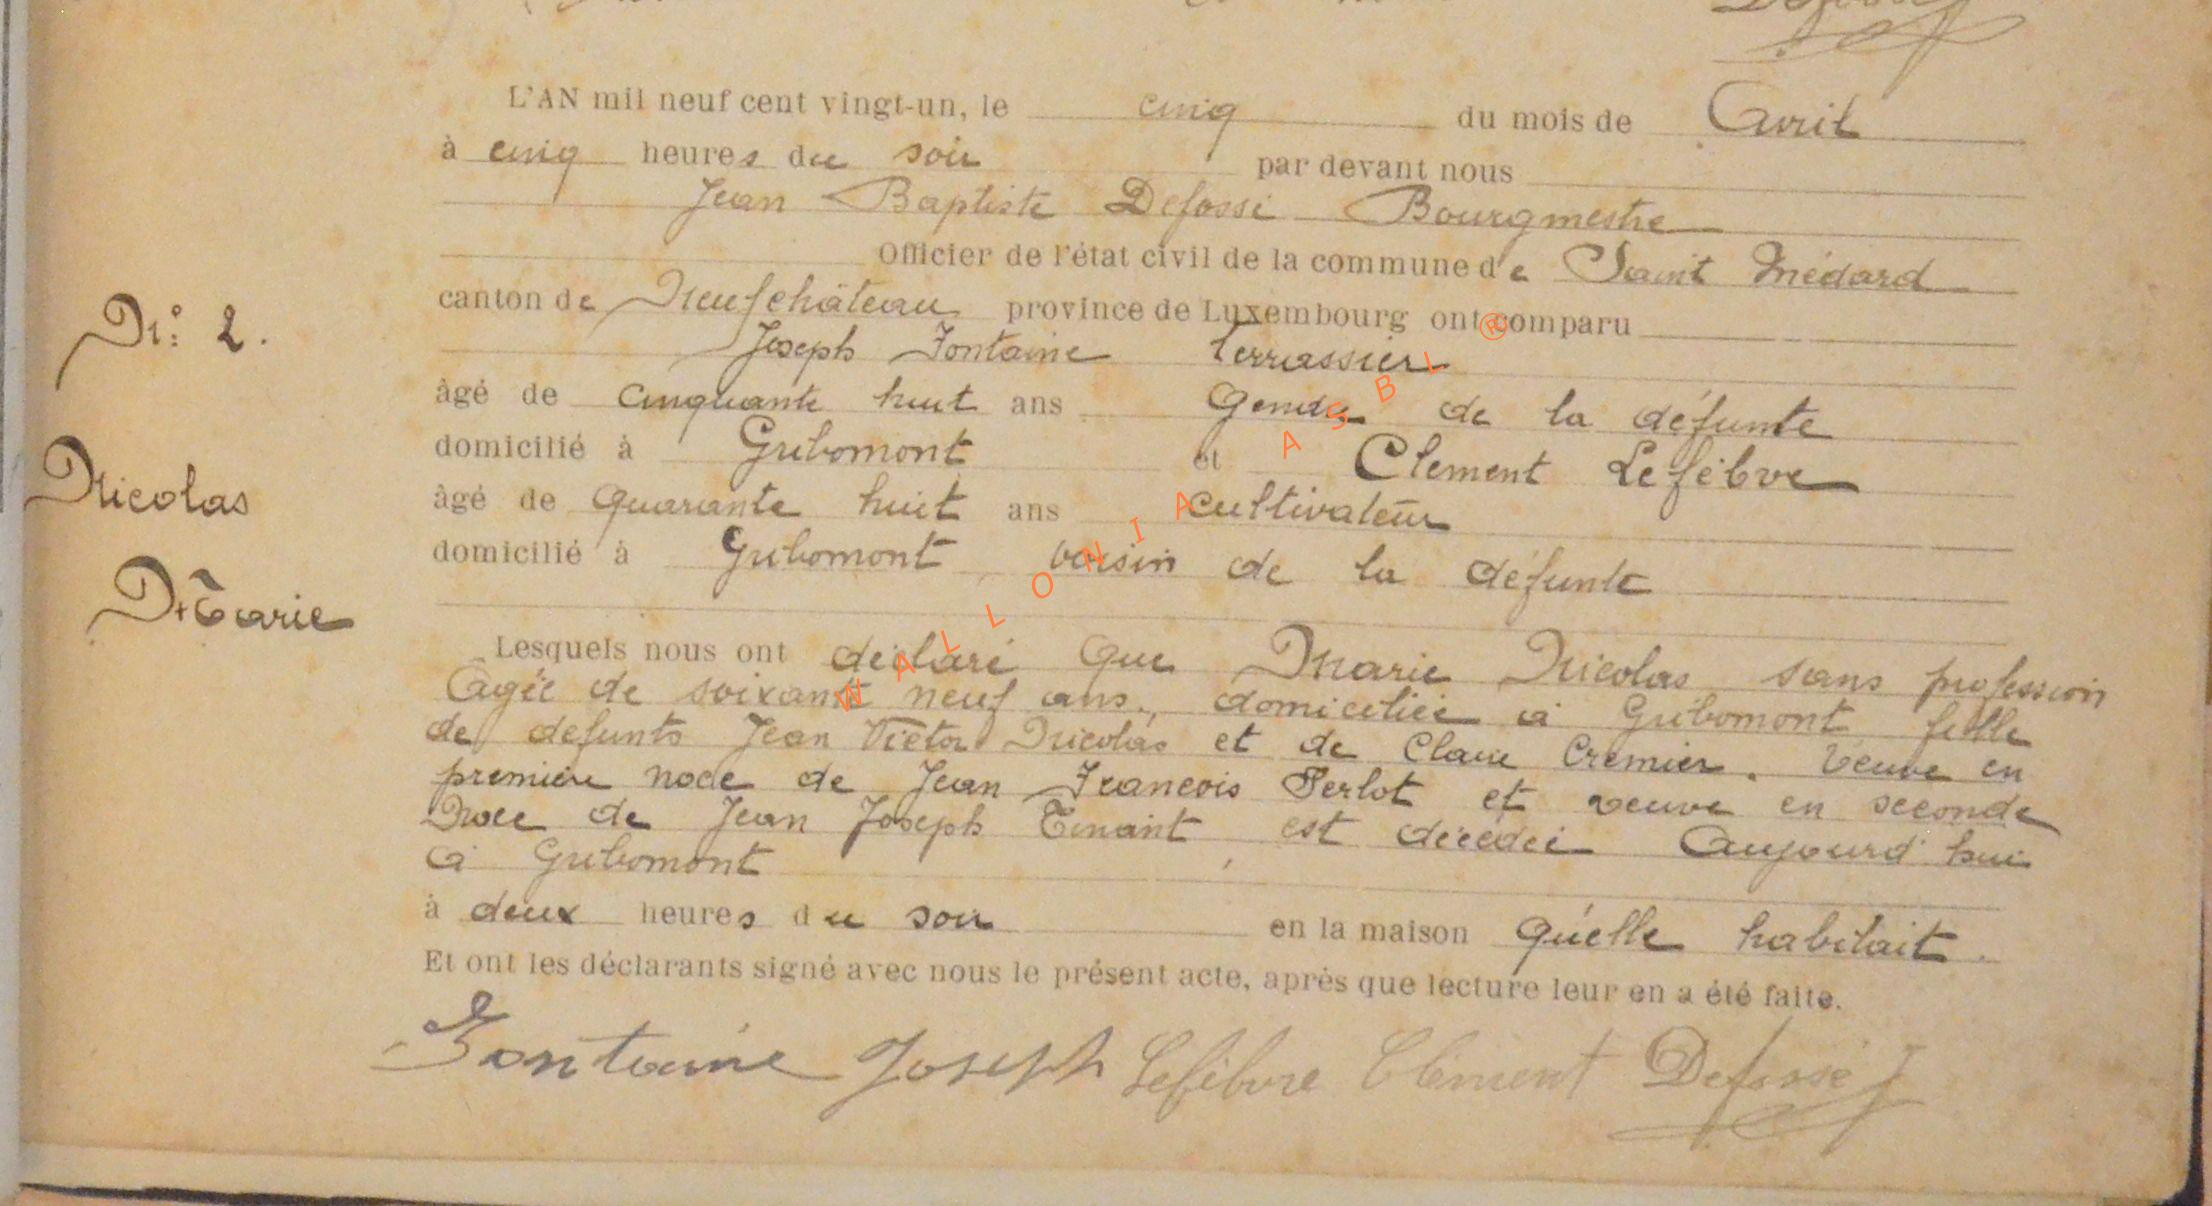 L'AN mil neuf cent vingt-un, le cinq du mois de Avril
à cinq heures du soir par devant nous
Jean Baptiste Defossé Bourgmestre
Officier de l'état civil de la commune de Saint Médard
canton de Neufchâteau province de Luxembourg ont comparu
Joseph Fontaine terrassier
âgé de cinquante huit ans Gendre de la défunte
domicilié à Gribomont et Clement Lefèbvre
âgé de quarante huit ans cultivateur
domicilié à Gribomont, voisin de la défunte
N° 2.
Nicolas
Marie
Lesquels nous ont déclaré que Marie Nicolas sans profession
Agée de soixante neuf ans, domiciliée à Gribomont fille
de defunts Jean Victor Nicolas et de Claire Cremier. Veuve en
première noce de Jean Francois Perlot et veuve en seconde
Noce de Jean Joseph Tinant, est décédée Aujourd'hui
à Gribomont
à deux heures du soir en la maison qu'elle habitait.
Et ont les déclarants signé avec nous le présent acte, après que lecture leur en a été faite.
Fontaine Joseph Lefèbvre Clément Defossé J
WALLONIA ASBL ®